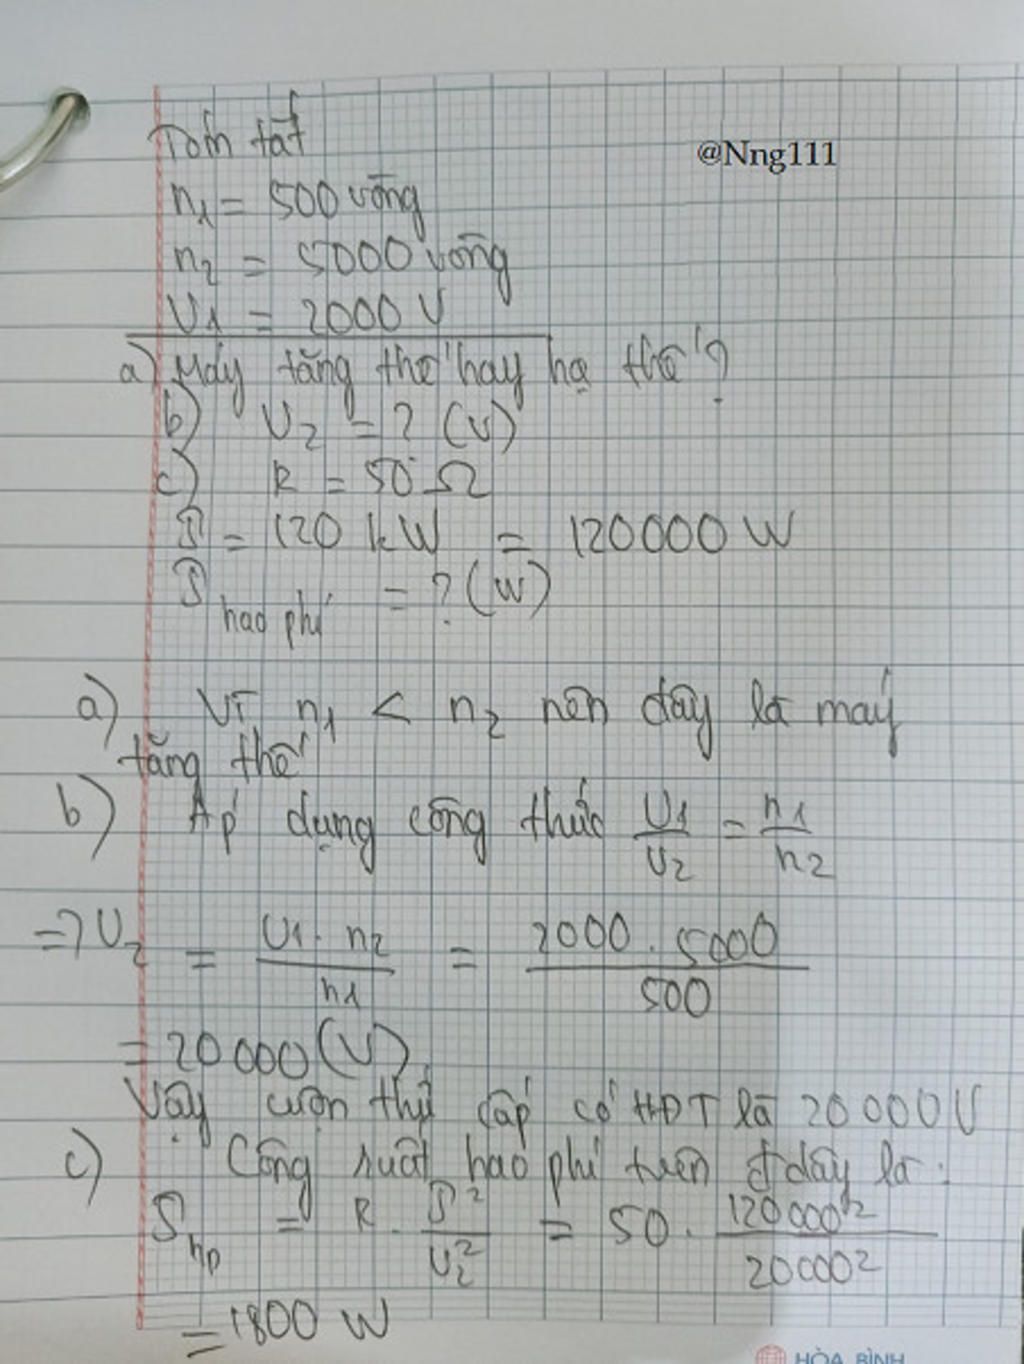 Tóm tắt
@Nng111
n₁ = 500 vòng
n₂ = 5000 vòng
U₁ = 2000 V
a) Máy tăng thế hay hạ thế?
b) U₂ = ? (V)
c) R = 50 Ω
P = 120 kW = 120000 W
P hao phí = ? (W)
a) Vì n₁ < n₂ nên đây là máy
tăng thế
b) Áp dụng công thức U₁/U₂ = n₁/n₂
=> U₂ = U₁ . n₂ / n₁ = 2000 . 5000 / 500
= 20 000 (V)
Vậy cuộn thứ cấp có HĐT là 20 000 V
c) Công suất hao phí trên đ dây là :
P hp = R . P² / U₂² = 50 . 120 000² / 20 000²
= 1800 W
HÒA BÌNH